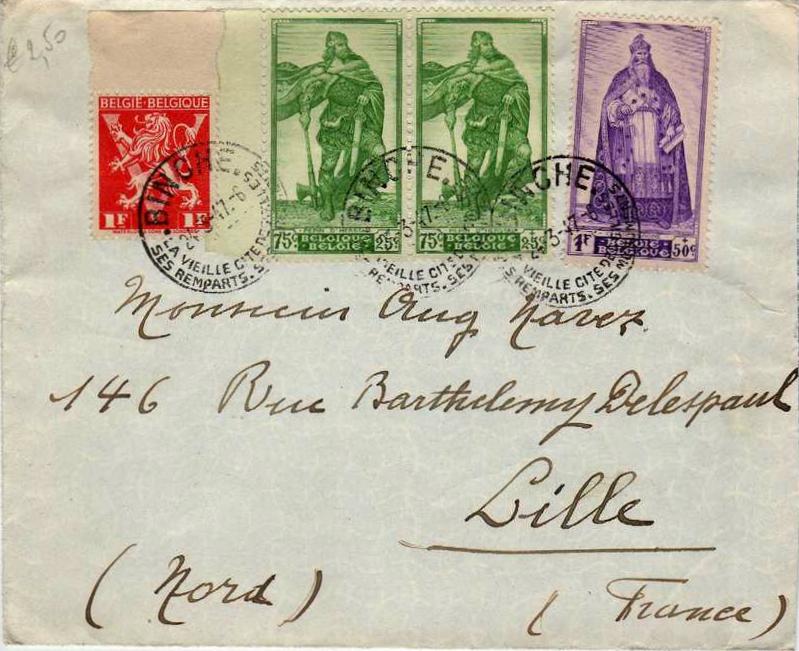 € 2,50
BELGIË-BELGIQUE
1F 1F
75c BELGIQUE BELGIË 25c
75c BELGIQUE BELGIË
1F BELGIË BELGIQUE 50c
BINCHE.
LA VIEILLE CITE DE
SES REMPARTS. SES
BINCHE.
VIEILLE CITE
REMPARTS. SES
BINCHE
VIEILLE CITE DE
SES REMPARTS. SES
Monsieur Aug Navez
146 Rue Barthelemy Delespaul
Lille
(Nord) (France)